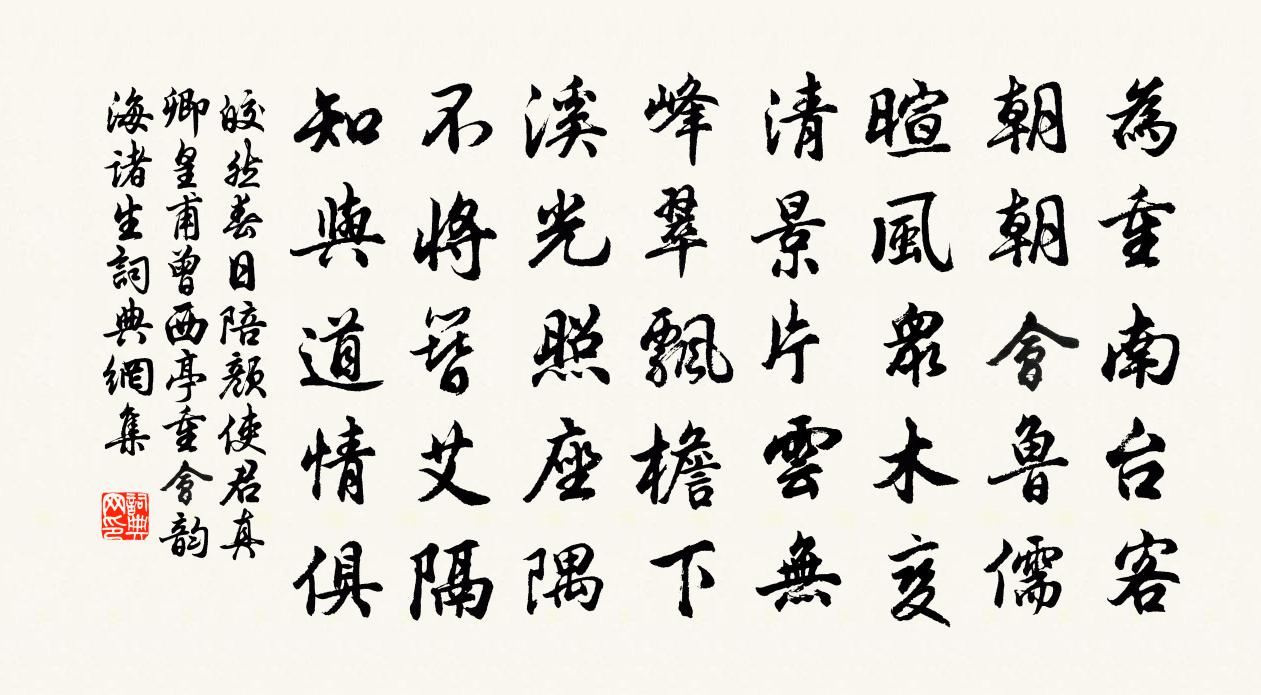 為重南台客
朝朝會魯儒
暄風眾木變
清景片雲無
峰翠飄檐下
溪光照座隅
不將簪艾隔
知與道情俱
皎然春日陪顏使君真
卿皇甫曾西亭重會韵
海諸生詞典網集
詞典
网印